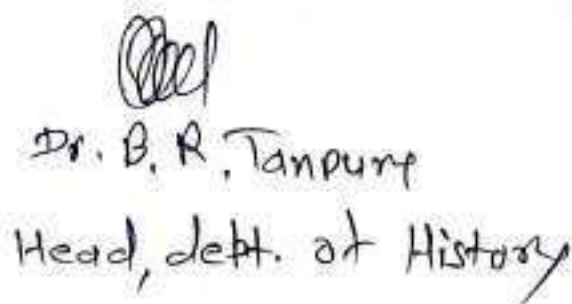 Dr. B. R. Tanpure
Head, dept. of History